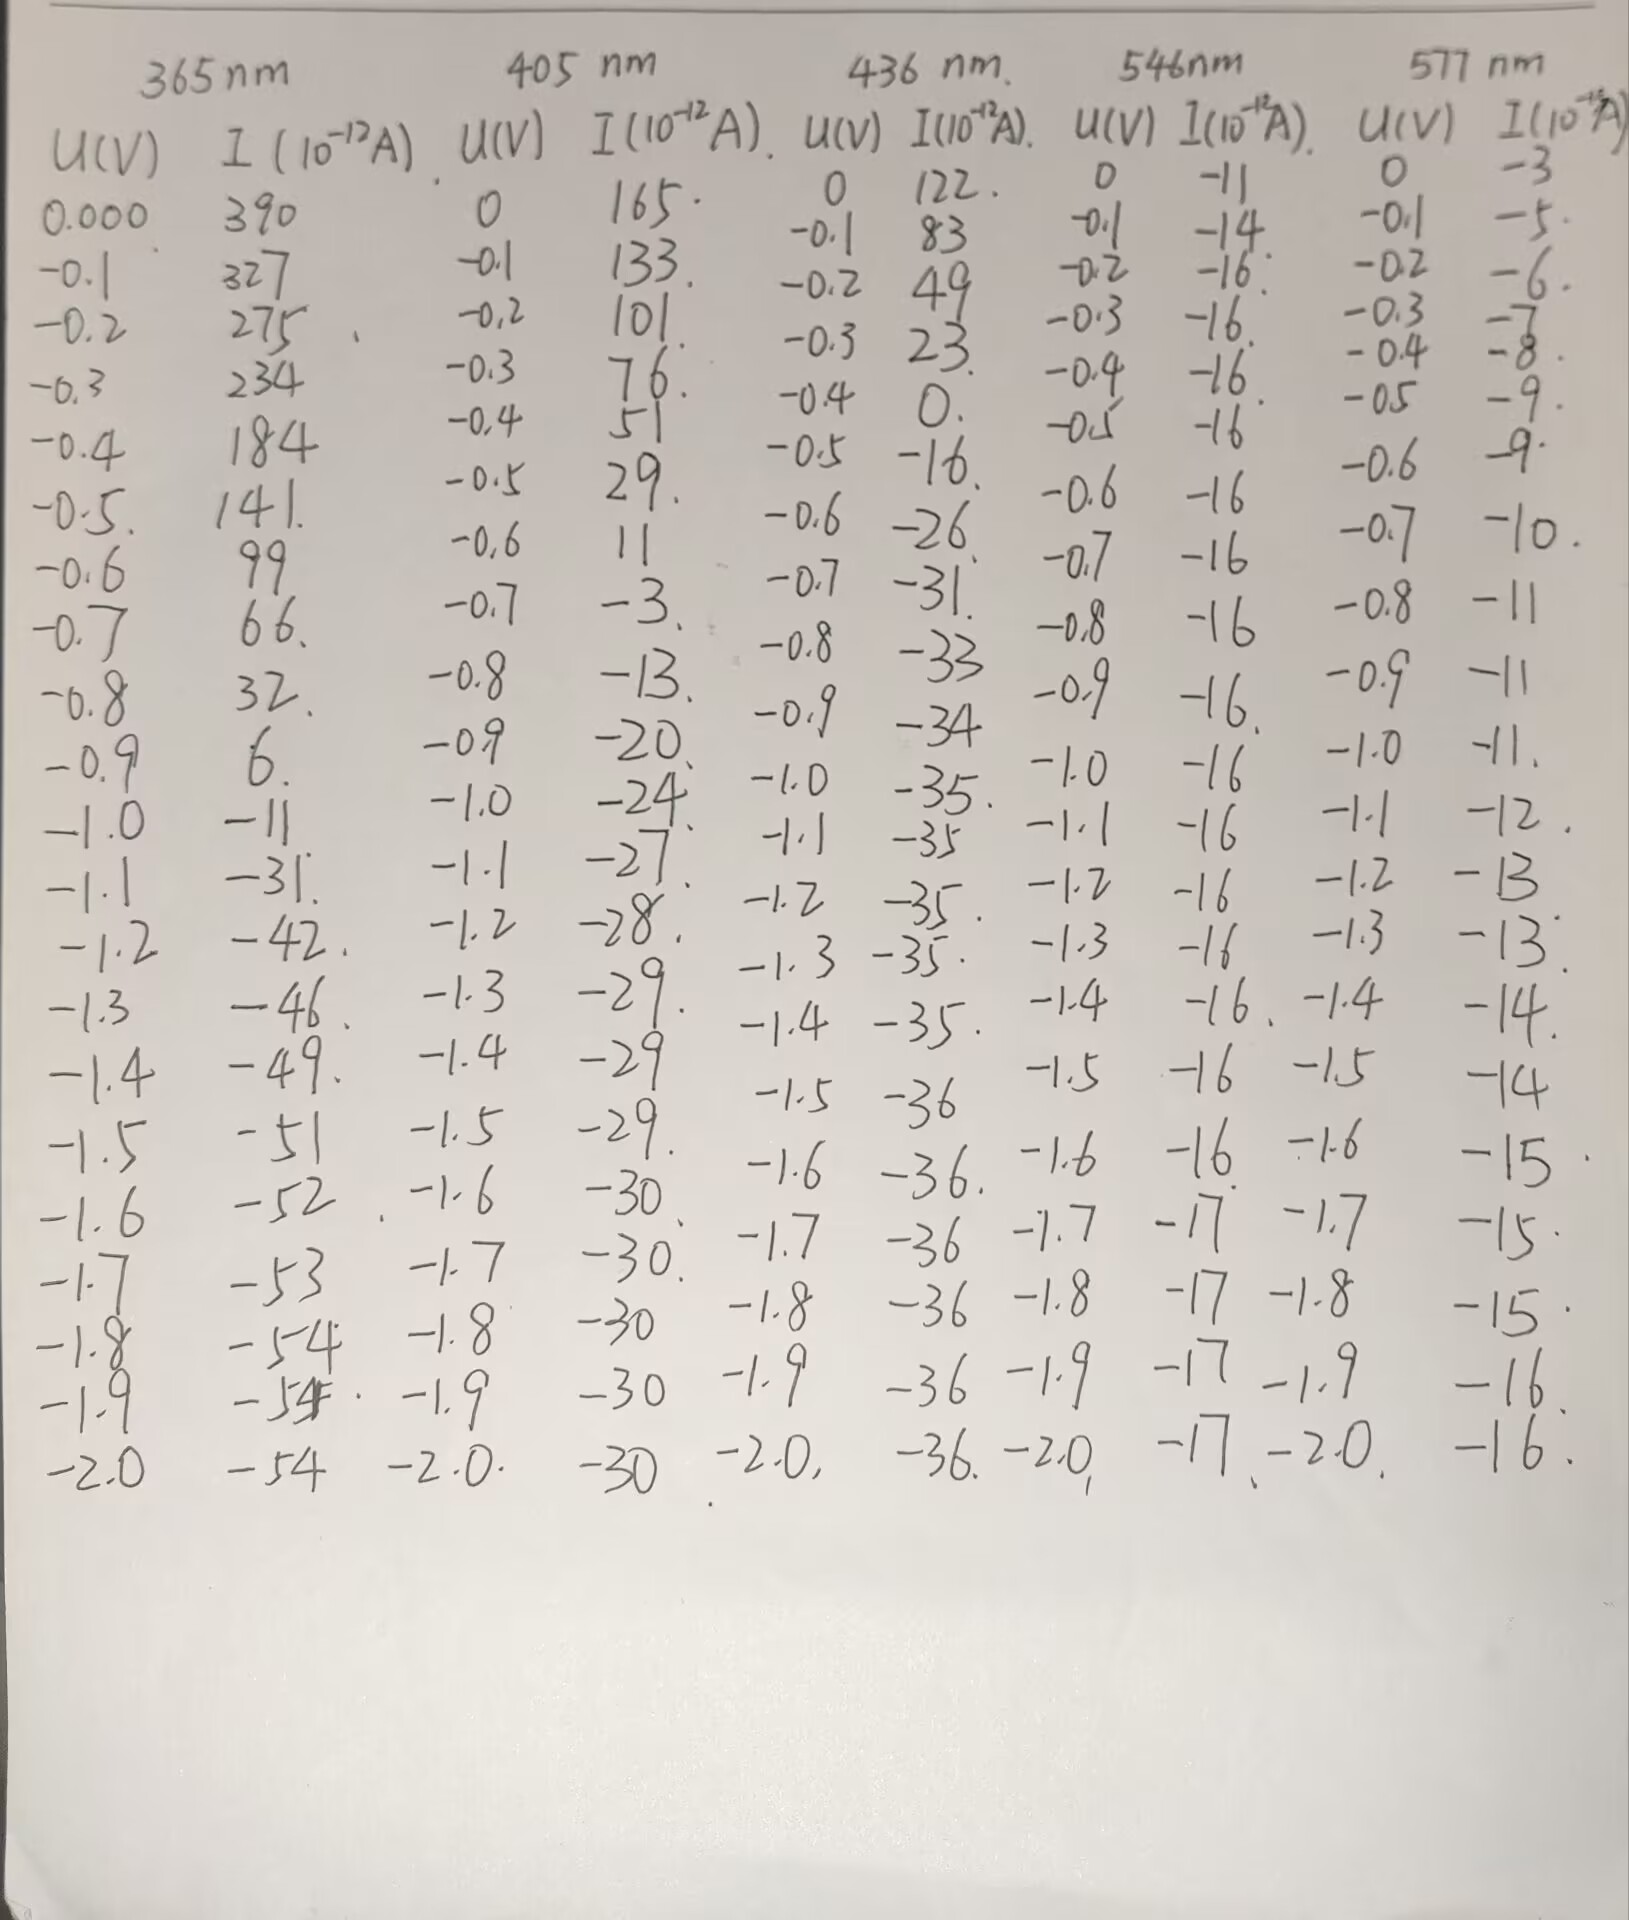 365 nm 405 nm 436 nm. 546nm 577 nm
U(V) I (10⁻¹²A). U(V) I (10⁻¹²A). U(V) I(10⁻¹²A). U(V) I(10⁻¹²A). U(V)
0.000 390 0 165. 0 122. 0 -11 0 -3
-0.1 327 -0.1 133. -0.1 83 -0.1 -14 -0.1 -5.
-0.2 275 -0.2 101. -0.2 49 -0.2 -16. -0.2 -6.
-0.3 234 -0.3 76. -0.3 23. -0.3 -16. -0.3 -7
-0.4 184 -0.4 51 -0.4 0. -0.4 -16. -0.4 -8.
-0.5. 141. -0.5 29. -0.5 -16. -0.5 -16 -05 -9.
-0.6 99 -0.6 11 -0.6 -26. -0.6 -16 -0.6 -9.
-0.7 66. -0.7 -3. -0.7 -31. -0.7 -16 -0.7 -10.
-0.8 32. -0.8 -13. -0.8 -33 -0.8 -16 -0.8 -11
-0.9 6. -0.9 -20. -0.9 -34 -0.9 -16. -0.9 -11
-1.0 -11 -1.0 -24. -1.0 -35. -1.0 -16 -1.0 -11.
-1.1 -31. -1.1 -27. -1.1 -35 -1.1 -16 -1.1 -12.
-1.2 -42. -1.2 -28. -1.2 -35. -1.2 -16 -1.2 -13
-1.3 -46. -1.3 -29. -1.3 -35. -1.3 -16 -1.3 -13.
-1.4 -49. -1.4 -29 -1.4 -35. -1.4 -16. -1.4 -14.
-1.5 -51 -1.5 -29. -1.5 -36 -1.5 -16 -1.5 -14
-1.6 -52 -1.6 -30. -1.6 -36. -1.6 -16. -1.6 -15.
-1.7 -53 -1.7 -30. -1.7 -36 -1.7 -17 -1.7 -15.
-1.8 -54 -1.8 -30 -1.8 -36 -1.8 -17 -1.8 -15.
-1.9 -54. -1.9 -30 -1.9 -36 -1.9 -17 -1.9 -16.
-2.0 -54 -2.0. -30 -2.0, -36. -2.0, -17. -2.0. -16.